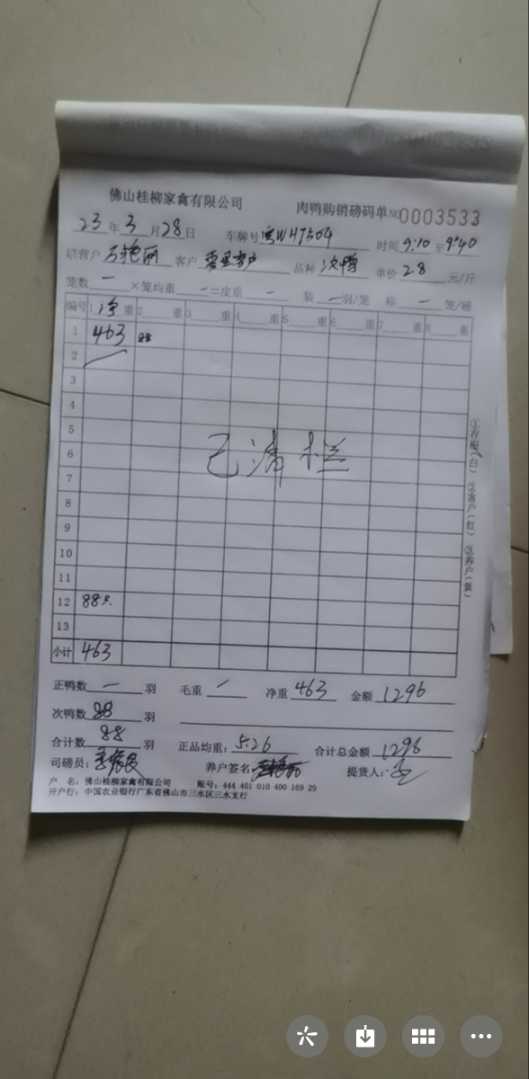 佛山桂柳家禽有限公司 肉鸭购销磅码单 №0003533
23年3月28日 车牌号 WH7504 时间 9:10 至 9:40
培营户 客户 品种 次鸭 单价 2.8 元/斤
笼数 一 ×笼均重 一 =皮重 一 装 一 羽/笼 称 一 笼/磅
编号 1 净 重 2 重 3 重 4 重 5 重 6 重 7 重 8 重
1 463
2
3
4
5
6 已清栏
7
8
9
10
11
12 88只
13
小计 463
正鸭数 一 羽 毛重 净重 463 金额 1296
次鸭数 88 羽
合计数 88 羽 正品均重: 5.26 合计总金额 1296
司磅员: 养户签名: 提货人:
户 名: 佛山桂柳家禽有限公司 账号: 444 401 010 400 169 29
开户行: 中国农业银行广东省佛山市三水区三水支行